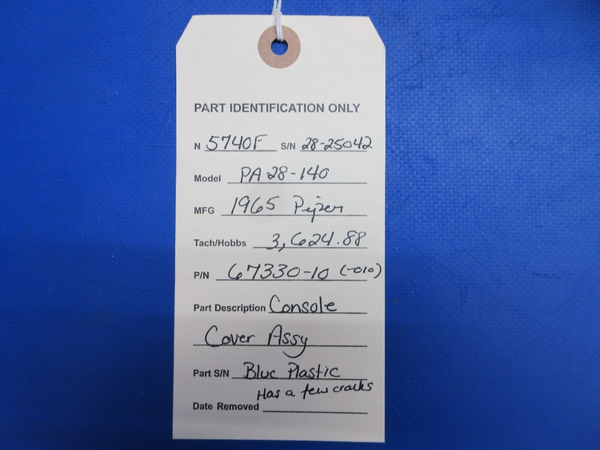 PART IDENTIFICATION ONLY
N 5740F S/N 28-25042
Model PA28-140
MFG 1965 Piper
Tach/Hobbs 3,624.88
P/N 67330-10 (-010)
Part Description Console
Cover Assy
Part S/N Blue Plastic
Has a few cracks
Date Removed